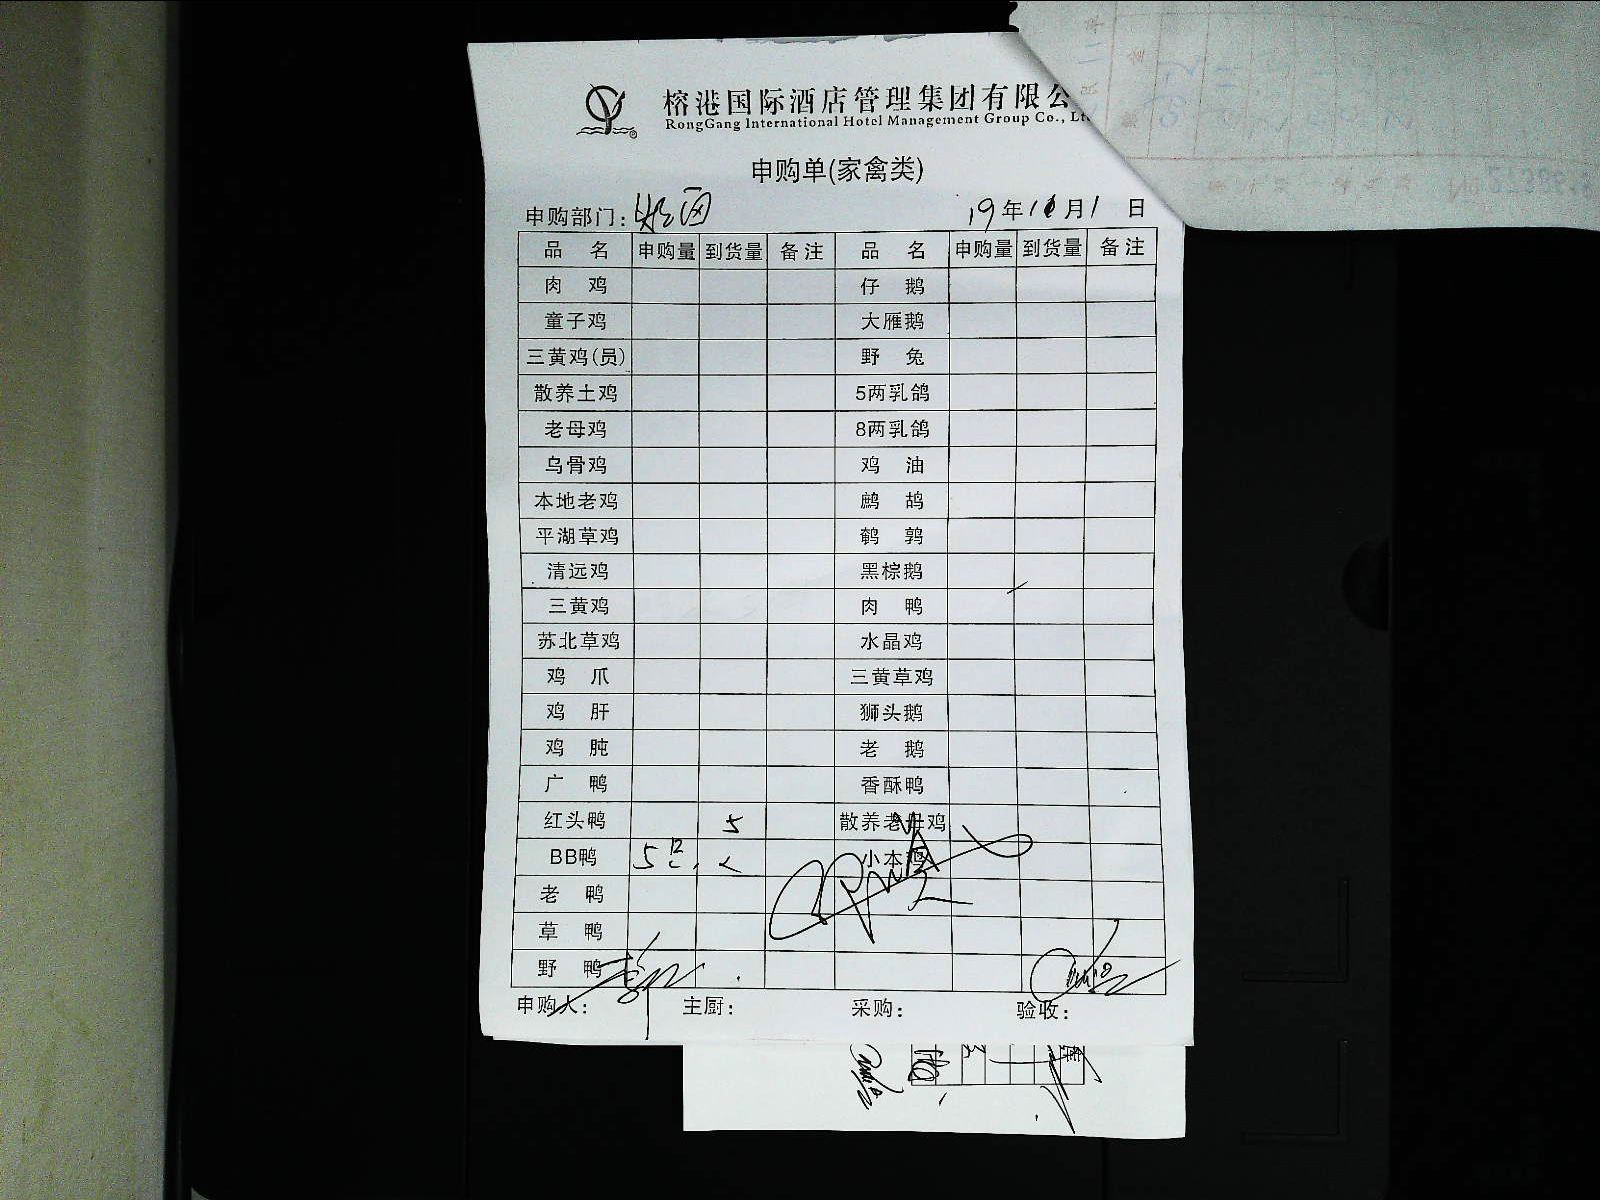 榕港国际酒店管理集团有限公
RongGang International Hotel Management Group Co., Lt
申购单(家禽类)
申购部门: 19年10月1日
品名 申购量 到货量 备注 品名 申购量 到货量 备注
肉鸡 仔鹅
童子鸡 大雁鹅
三黄鸡(员) 野兔
散养土鸡 5两乳鸽
老母鸡 8两乳鸽
乌骨鸡 鸡油
本地老鸡 鹧鸪
平湖草鸡 鹌鹑
清远鸡 黑棕鹅
三黄鸡 肉鸭
苏北草鸡 水晶鸡
鸡爪 三黄草鸡
鸡肝 狮头鹅
鸡肫 老鹅
广鸭 香酥鸭
红头鸭 5 散养老母鸡
BB鸭 5 小本鸡
老鸭
草鸭
野鸭
申购人: 主厨: 采购: 验收: